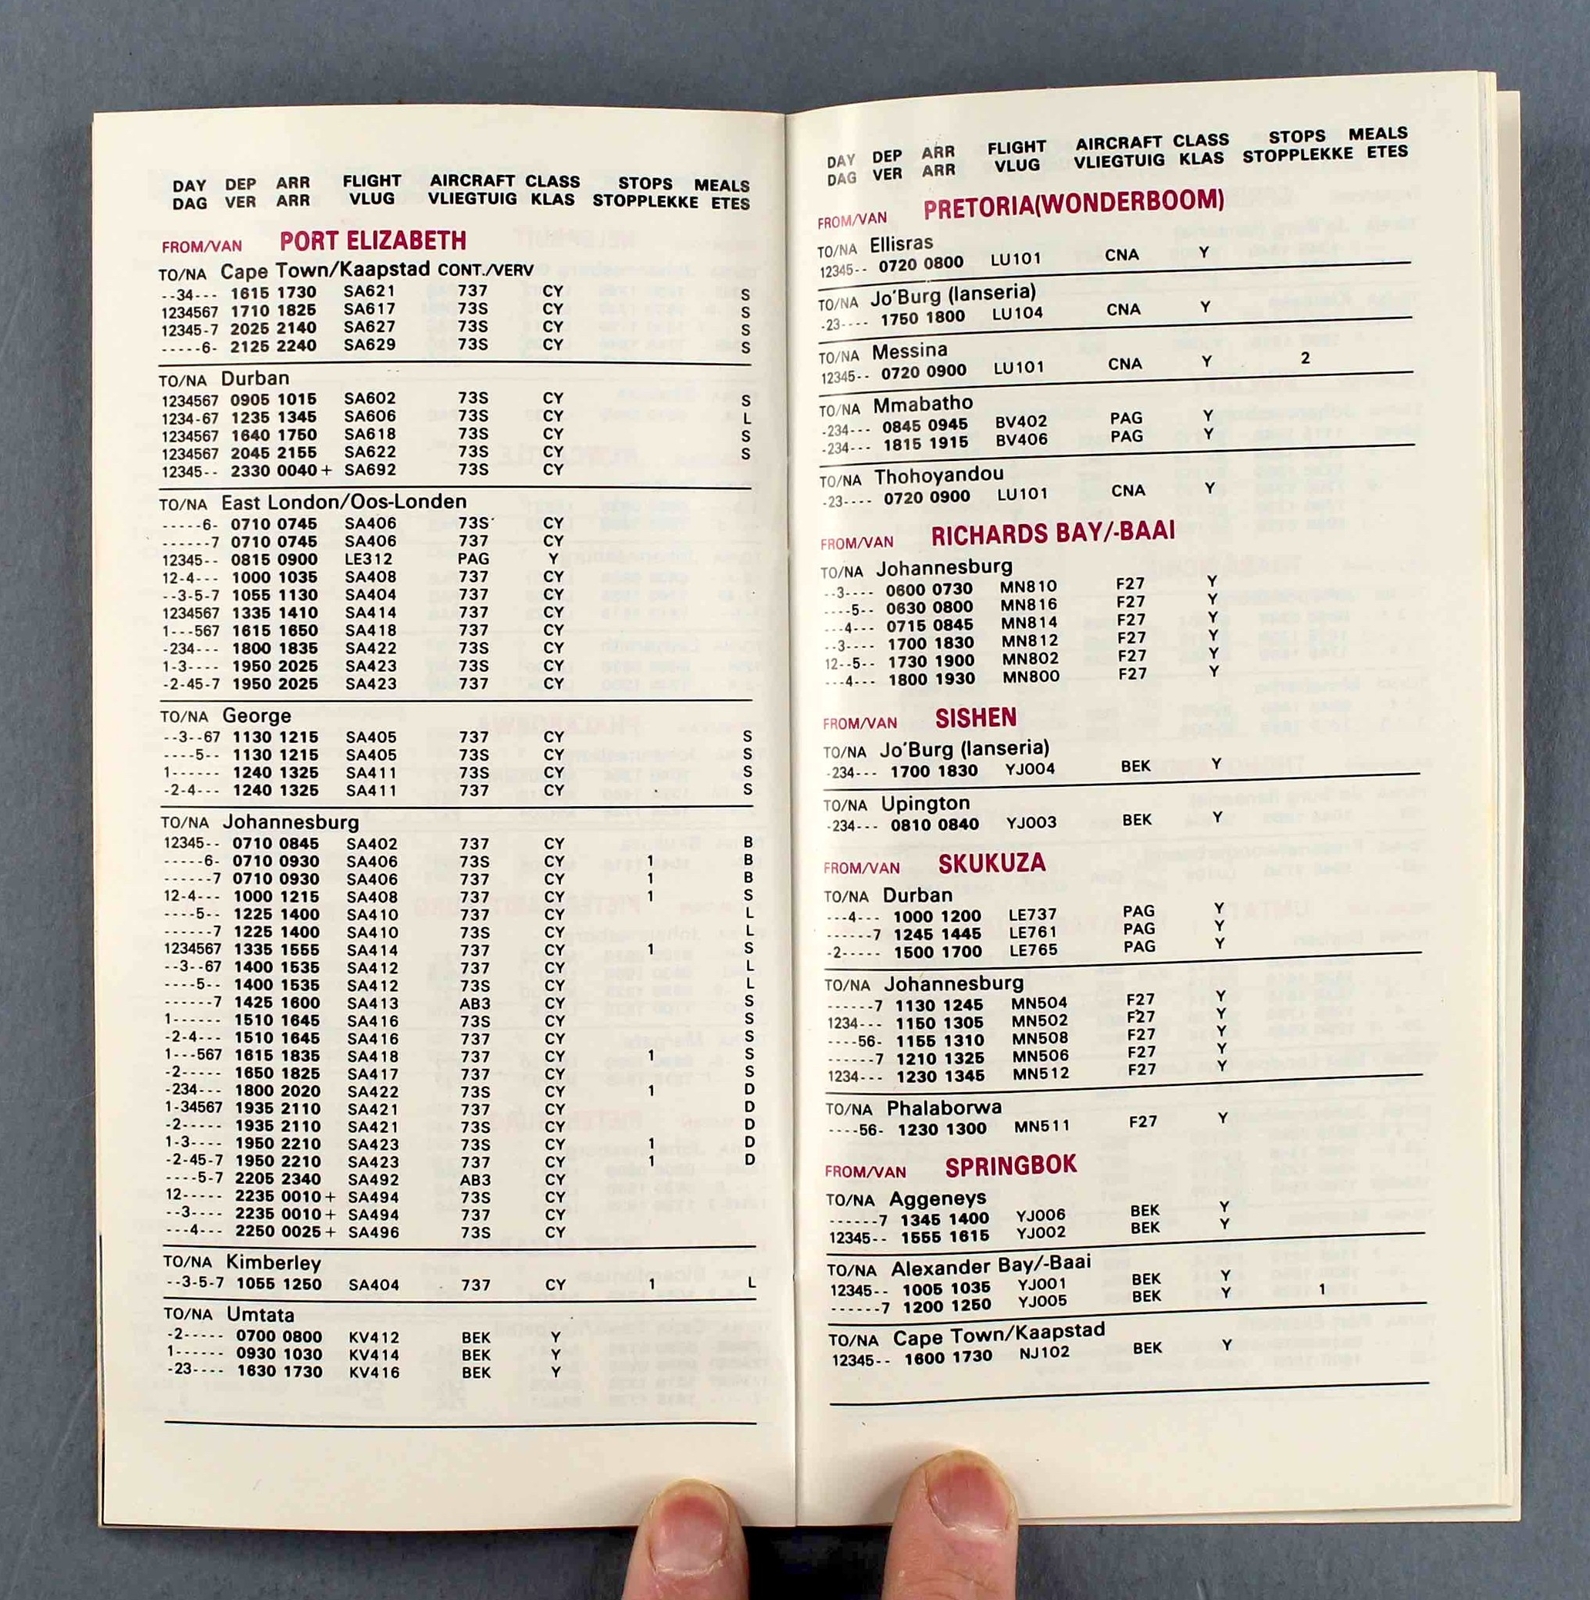 DAY DEP ARR FLIGHT AIRCRAFT CLASS STOPS MEALS
DAG VER ARR VLUG VLIEGTUIG KLAS STOPPLEKKE ETES
FROM/VAN PORT ELIZABETH
TO/NA Cape Town/Kaapstad CONT./VERV
--34--- 1615 1730 SA621 737 CY S
1234567 1710 1825 SA617 73S CY S
12345-7 2025 2140 SA627 73S CY S
-----6- 2125 2240 SA629 73S CY S
TO/NA Durban
1234567 0905 1015 SA602 73S CY S
1234-67 1235 1345 SA606 73S CY L
1234567 1640 1750 SA618 73S CY S
1234567 2045 2155 SA622 73S CY S
12345-- 2330 0040+ SA692 73S CY
TO/NA East London/Oos-Londen
-----6- 0710 0745 SA406 73S CY
------7 0710 0745 SA406 737 CY
12345-- 0815 0900 LE312 PAG Y
12-4--- 1000 1035 SA408 737 CY
--3-5-7 1055 1130 SA404 737 CY
1234567 1335 1410 SA414 737 CY
1---567 1615 1650 SA418 737 CY
-234--- 1800 1835 SA422 73S CY
1-3---- 1950 2025 SA423 73S CY
-2-45-7 1950 2025 SA423 737 CY
TO/NA George
--3--67 1130 1215 SA405 737 CY S
----5-- 1130 1215 SA405 73S CY S
1------ 1240 1325 SA411 73S CY S
-2-4--- 1240 1325 SA411 737 CY S
TO/NA Johannesburg
12345-- 0710 0845 SA402 737 CY B
-----6- 0710 0930 SA406 73S CY 1 B
------7 0710 0930 SA406 737 CY 1 B
12-4--- 1000 1215 SA408 737 CY 1 S
----5-- 1225 1400 SA410 737 CY L
------7 1225 1400 SA410 73S CY L
1234567 1335 1555 SA414 737 CY 1 S
--3--67 1400 1535 SA412 737 CY L
----5-- 1400 1535 SA412 73S CY L
------7 1425 1600 SA413 AB3 CY S
1------ 1510 1645 SA416 73S CY S
-2-4--- 1510 1645 SA416 737 CY S
1---567 1615 1835 SA418 737 CY 1 S
-2----- 1650 1825 SA417 737 CY S
-234--- 1800 2020 SA422 73S CY 1 D
1-34567 1935 2110 SA421 737 CY D
-2----- 1935 2110 SA421 73S CY D
1-3---- 1950 2210 SA423 73S CY 1 D
-2-45-7 1950 2210 SA423 737 CY 1 D
----5-7 2205 2340 SA492 AB3 CY
12----- 2235 0010+ SA494 73S CY
--3---- 2235 0010+ SA494 737 CY
---4--- 2250 0025+ SA496 73S CY
TO/NA Kimberley
--3-5-7 1055 1250 SA404 737 CY 1 L
TO/NA Umtata
-2----- 0700 0800 KV412 BEK Y
1------ 0930 1030 KV414 BEK Y
-23---- 1630 1730 KV416 BEK Y
DAY DEP ARR FLIGHT AIRCRAFT CLASS STOPS MEALS
DAG VER ARR VLUG VLIEGTUIG KLAS STOPPLEKKE ETES
FROM/VAN PRETORIA(WONDERBOOM)
TO/NA Ellisras
12345-- 0720 0800 LU101 CNA Y
TO/NA Jo'Burg (lanseria)
-23---- 1750 1800 LU104 CNA Y
TO/NA Messina
12345-- 0720 0900 LU101 CNA Y 2
TO/NA Mmabatho
-234--- 0845 0945 BV402 PAG Y
-234--- 1815 1915 BV406 PAG Y
TO/NA Thohoyandou
-23---- 0720 0900 LU101 CNA Y
FROM/VAN RICHARDS BAY/-BAAI
TO/NA Johannesburg
--3---- 0600 0730 MN810 F27 Y
----5-- 0630 0800 MN816 F27 Y
---4--- 0715 0845 MN814 F27 Y
--3---- 1700 1830 MN812 F27 Y
12--5-- 1730 1900 MN802 F27 Y
---4--- 1800 1930 MN800 F27 Y
FROM/VAN SISHEN
TO/NA Jo'Burg (lanseria)
-234--- 1700 1830 YJ004 BEK Y
TO/NA Upington
-234--- 0810 0840 YJ003 BEK Y
FROM/VAN SKUKUZA
TO/NA Durban
---4--- 1000 1200 LE737 PAG Y
------7 1245 1445 LE761 PAG Y
-2----- 1500 1700 LE765 PAG Y
TO/NA Johannesburg
------7 1130 1245 MN504 F27 Y
1234--- 1150 1305 MN502 F27 Y
----56- 1155 1310 MN508 F27 Y
------7 1210 1325 MN506 F27 Y
1234--- 1230 1345 MN512 F27 Y
TO/NA Phalaborwa
----56- 1230 1300 MN511 F27 Y
FROM/VAN SPRINGBOK
TO/NA Aggeneys
------7 1345 1400 YJ006 BEK Y
12345-- 1555 1615 YJ002 BEK Y
TO/NA Alexander Bay/-Baai
12345-- 1005 1035 YJ001 BEK Y
------7 1200 1250 YJ005 BEK Y 1
TO/NA Cape Town/Kaapstad
12345-- 1600 1730 NJ102 BEK Y